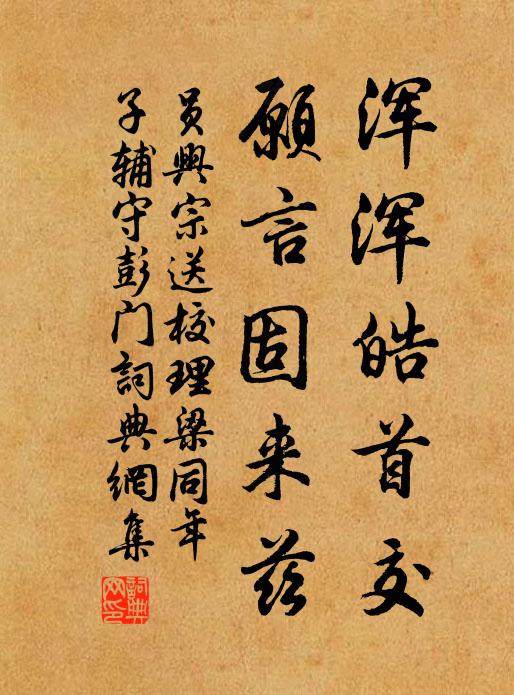 浑浑皓首交
願言固来兹
员興宗送校理梁同年
子辅守彭门詞典網集
詞典網印